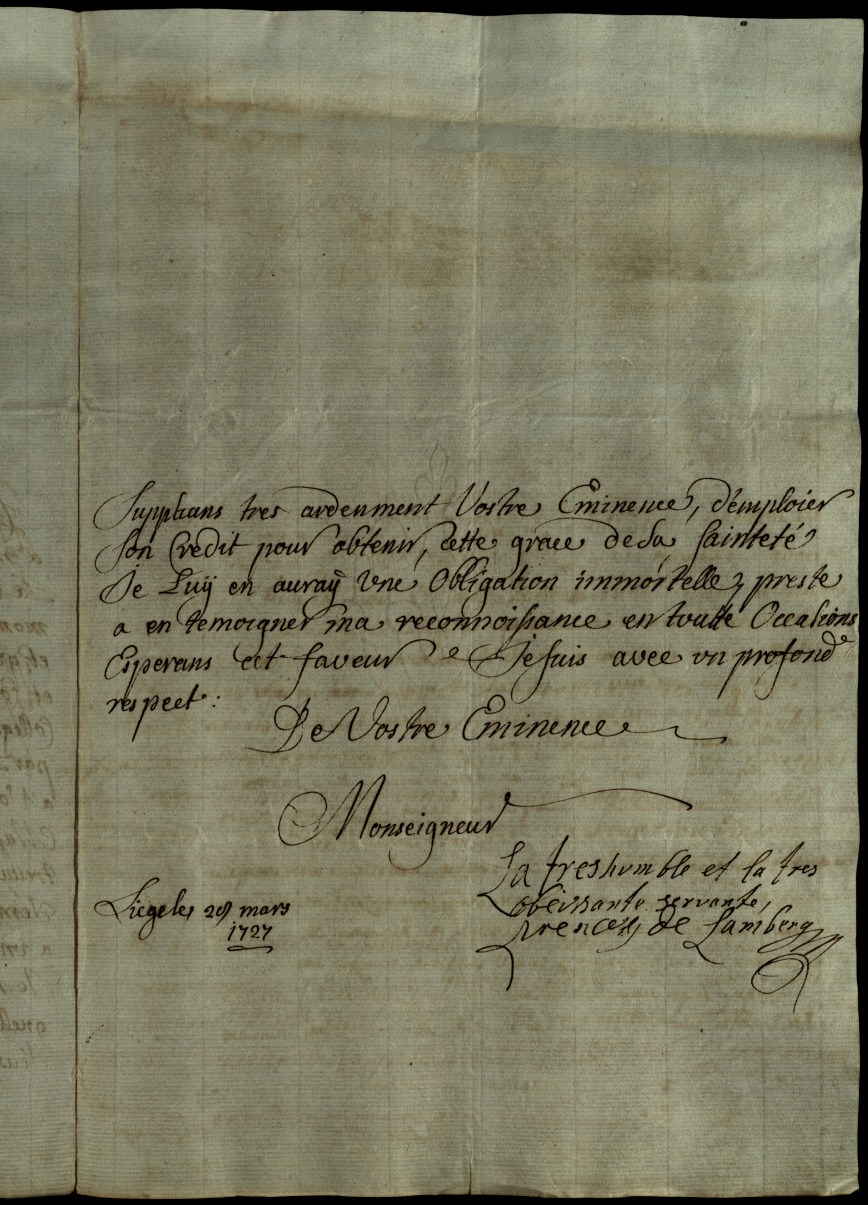 Supplians tres ardenment Vostre Eminence, d'emploier
son Credit pour obtenir, cette grace de sa sainteté
Je Luÿ en auraÿ Une Obligation immortelle, preste
a en temoigner ma reconnoissance en toutte Occasions
Esperans cet faveur Je suis avec un profond
respect:
De Vostre Eminence
Monseigneur
La tres humble et la tres
obeissante servante,
de Lamberg
Liege le mars
1727